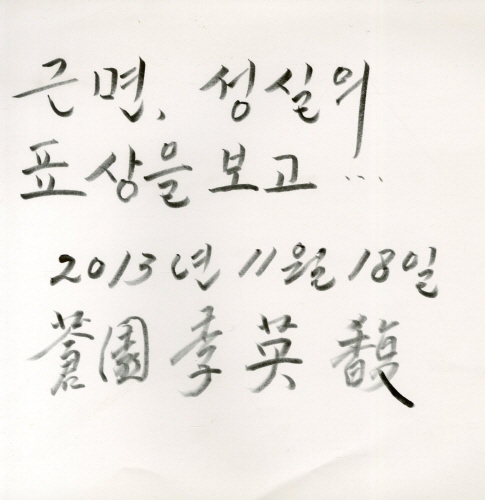 근면, 성실의
표상을 보고...
2013년 11월 18일
蒼園 李英馥